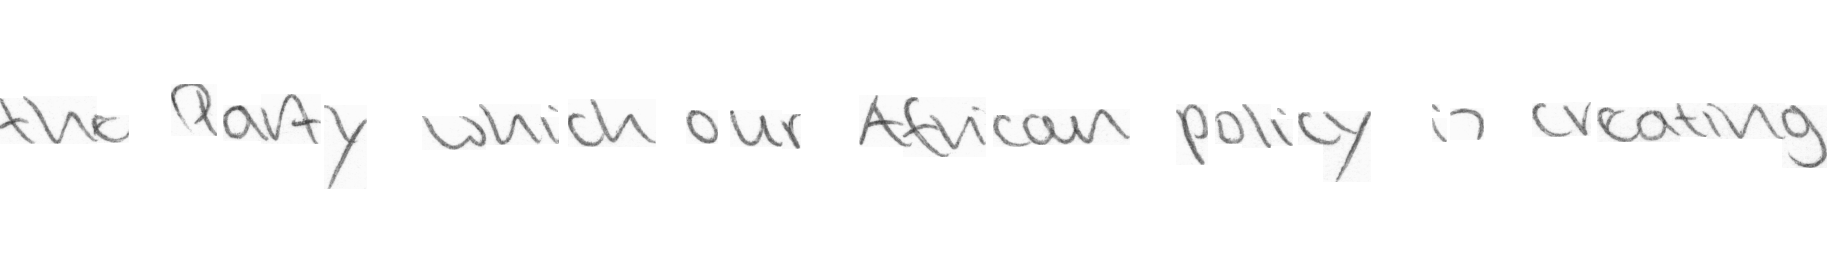 the Party which our African policy is creating